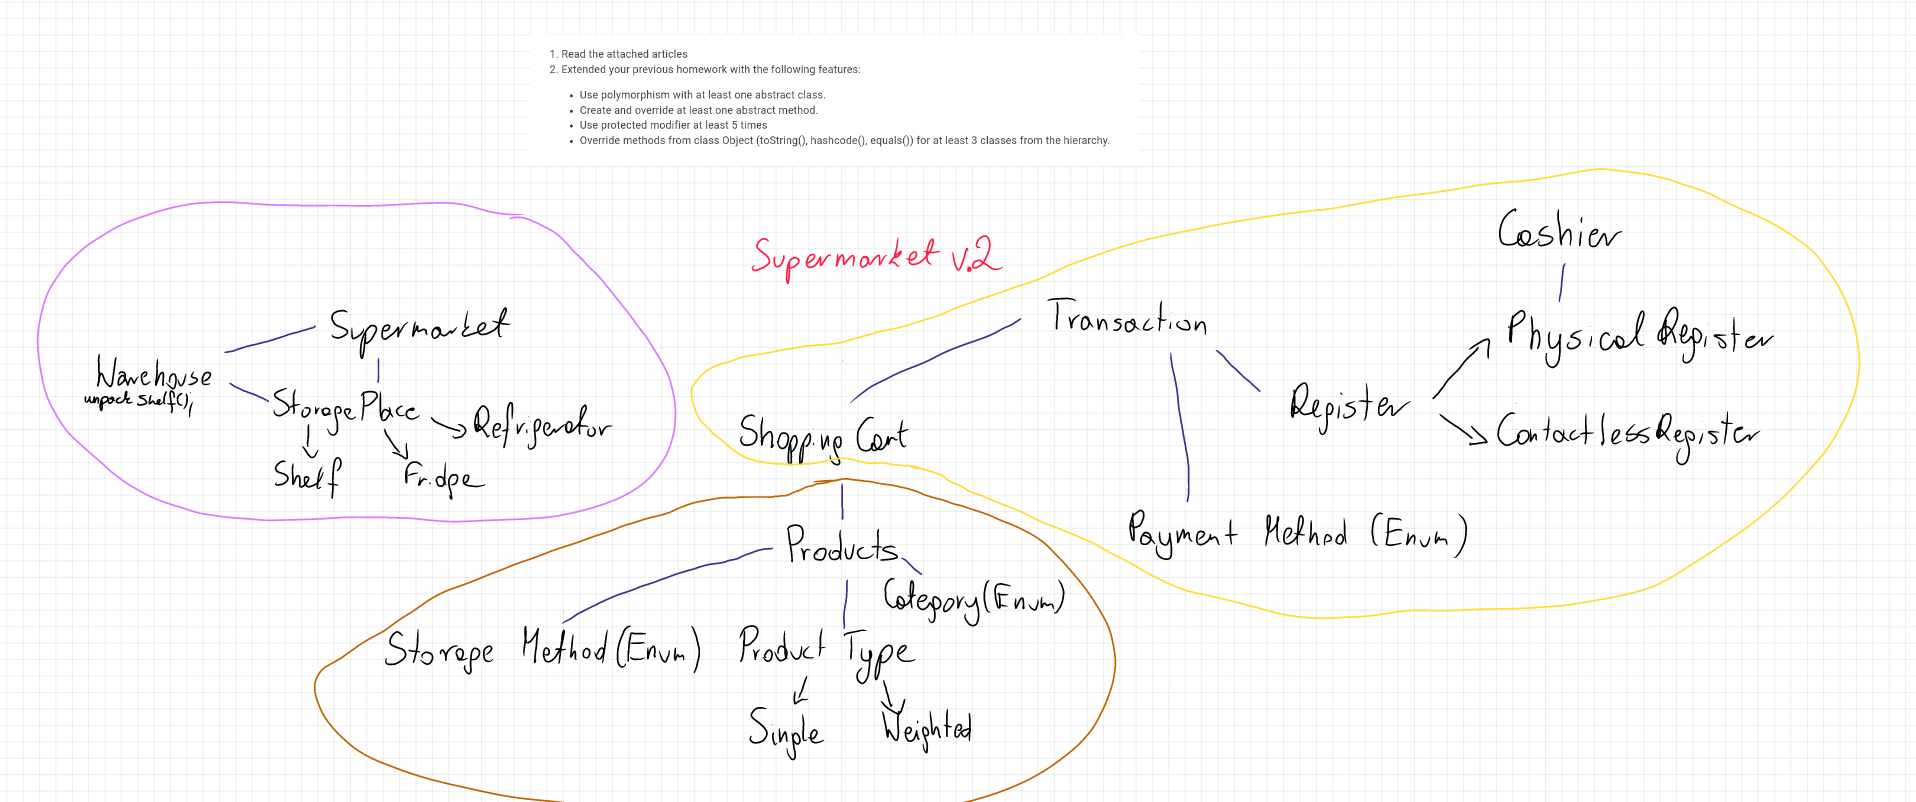 1. Read the attached articles
2. Extended your previous homework with the following features:
• Use polymorphism with at least one abstract class.
• Create and override at least one abstract method.
• Use protected modifier at least 5 times
• Override methods from class Object (toString(), hashcode(), equals()) for at least 3 classes from the hierarchy.
Supermarket v.2
Supermarket
Warehouse
unpack Shelf();
Storage Place
Refrigerator
Shelf
Fridge
Cashier
Transaction
Physical Register
Register
Contactless Register
Shopping Cart
Payment Method (Enum)
Products
Category (Enum)
Storage Method (Enum)
Product Type
Single
Weighted